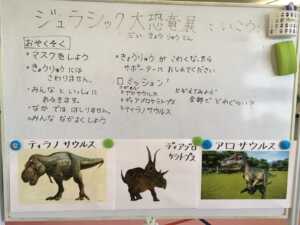 ジュラシック大恐竜展 にいこう!
だい きょうりゅうてん
おやくそく
*マスクをしよう
*きょうりゅうに
さわりません。
*みんなといっしょに
あるきます。
*なかではしりません。
*みんななかよくしよう
*きょうりゅうがこわくなったら
サポーターにおしえてください
ミッション!
アロサウルス
ディアブロケラトプス
ティラノサウルス
全部でどれぐらい?
ティラノサウルス
ディアブロ
ケラトプス
アロサウルス